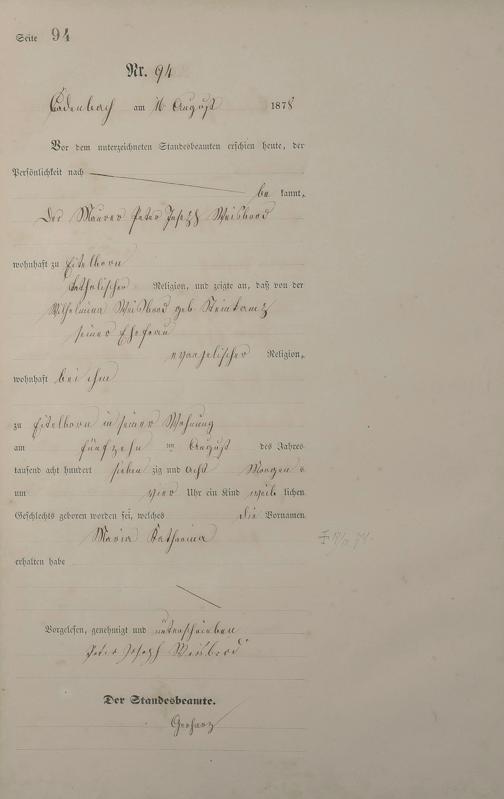 Seite 94
Nr. 94
Cadenbach am 16 August 1878
Vor dem unterzeichneten Standesbeamten erschien heute, der
Persönlichkeit nach
be kannt,
Der Maurer Peter Joseph Weisbrod
wohnhaft zu Eitelborn
katholischer Religion, und zeigte an, daß von der
Wilhelmina Weisbrod geb
seiner Ehefrau
evangelischer Religion,
wohnhaft bei ihm
zu Eitelborn in seiner Wohnung
am fünfzehn im August des Jahres
tausend acht hundert sieben zig und acht Morgens
um vier Uhr ein Kind weib lichen
Geschlechts geboren worden sei, welches die Vornamen
Maria Katharina
erhalten habe
Vorgelesen, genehmigt und unterschrieben
Peter Joseph Weisbrod
Der Standesbeamte.